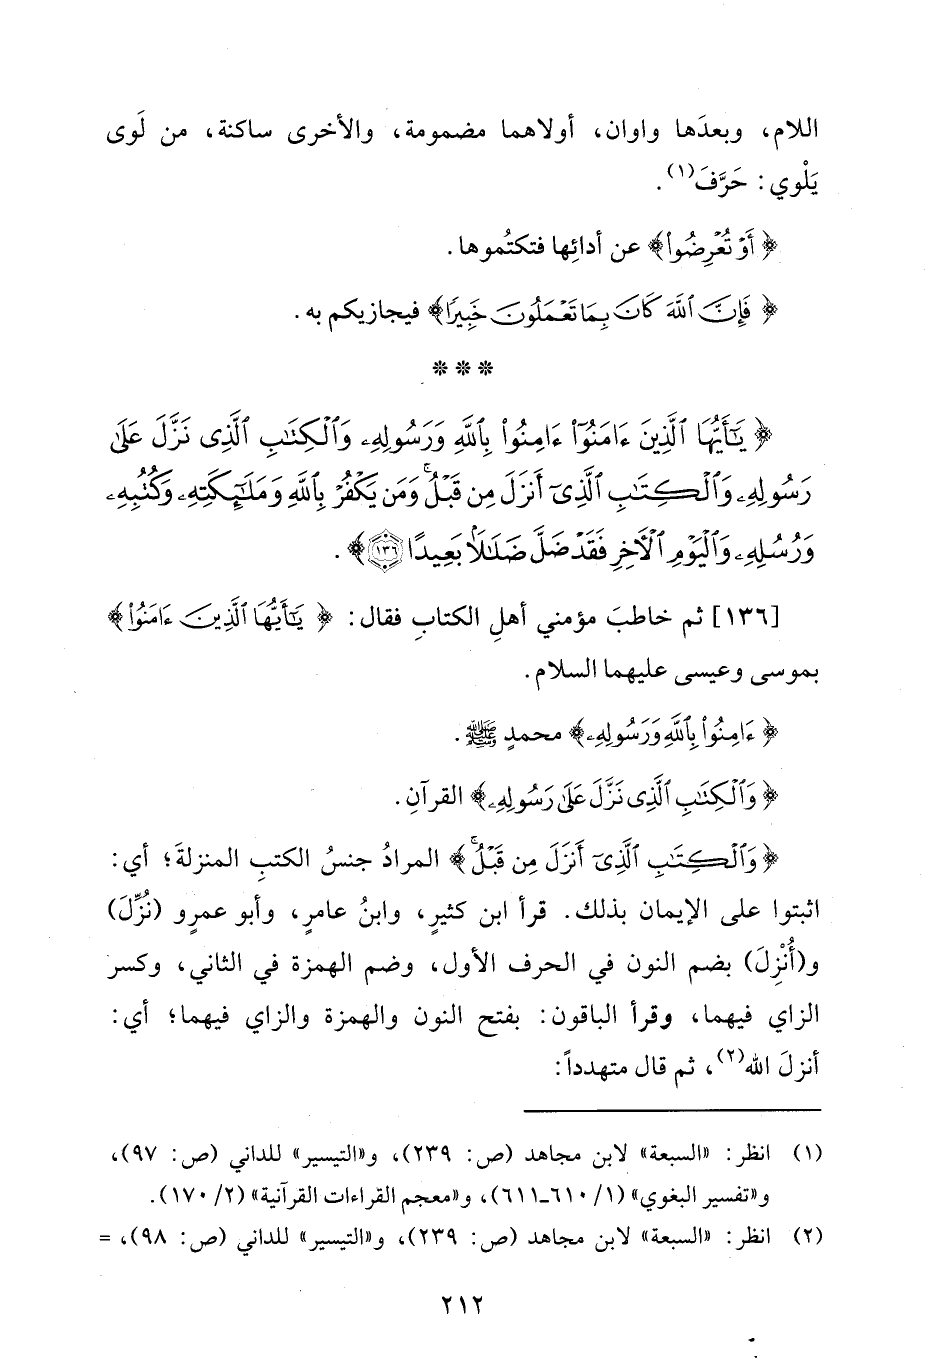 اللام، وبعدَها واوان، أولاهما مضمومة، والأخرى ساكنة، من لَوى
يَلْوي: حَرَّفَ(١).
﴿أَوْ تُعْرِضُوا۟﴾ عن أدائِها فتكتُموها.
﴿فَإِنَّ ٱللَّهَ كَانَ بِمَا تَعْمَلُونَ خَبِيرًا﴾ فيجازيكم به.
* * *
﴿يَٰٓأَيُّهَا ٱلَّذِينَ ءَامَنُوٓا۟ ءَامِنُوا۟ بِٱللَّهِ وَرَسُولِهِۦ وَٱلْكِتَٰبِ ٱلَّذِى نَزَّلَ عَلَىٰ
رَسُولِهِۦ وَٱلْكِتَٰبِ ٱلَّذِىٓ أَنزَلَ مِن قَبْلُ ۚ وَمَن يَكْفُرْ بِٱللَّهِ وَمَلَٰٓئِكَتِهِۦ وَكُتُبِهِۦ
وَرُسُلِهِۦ وَٱلْيَوْمِ ٱلْءَاخِرِ فَقَدْ ضَلَّ ضَلَٰلًۢا بَعِيدًا ١٣٦﴾.
[١٣٦] ثم خاطبَ مؤمني أهلِ الكتابِ فقال: ﴿يَٰٓأَيُّهَا ٱلَّذِينَ ءَامَنُوٓا۟﴾
بموسى وعيسى عليهما السلام.
﴿ءَامِنُوا۟ بِٱللَّهِ وَرَسُولِهِۦ﴾ محمدٍ ﷺ.
﴿وَٱلْكِتَٰبِ ٱلَّذِى نَزَّلَ عَلَىٰ رَسُولِهِۦ﴾ القرآنِ.
﴿وَٱلْكِتَٰبِ ٱلَّذِىٓ أَنزَلَ مِن قَبْلُ ۚ﴾ المرادُ جنسُ الكتبِ المنزلةَ؛ أي:
اثبتوا على الإيمان بذلك. قرأ ابن كثيرٍ، وابنُ عامرٍ، وأبو عمرٍو (نُزِّلَ)
و(أُنْزِلَ) بضم النون في الحرف الأول، وضم الهمزة في الثاني، وكسر
الزاي فيهما، وقرأ الباقون: بفتح النون والهمزة والزاي فيهما؛ أي:
أنزلَ الله(٢)، ثم قال متهدداً:
(١) انظر: «السبعة» لابن مجاهد (ص: ٢٣٩)، و«التيسير» للداني (ص: ٩٧)،
و«تفسير البغوي» (١/ ٦١٠-٦١١)، و«معجم القراءات القرآنية» (٢/ ١٧٠).
(٢) انظر: «السبعة» لابن مجاهد (ص: ٢٣٩)، و«التيسير» للداني (ص: ٩٨)، =
٢١٢